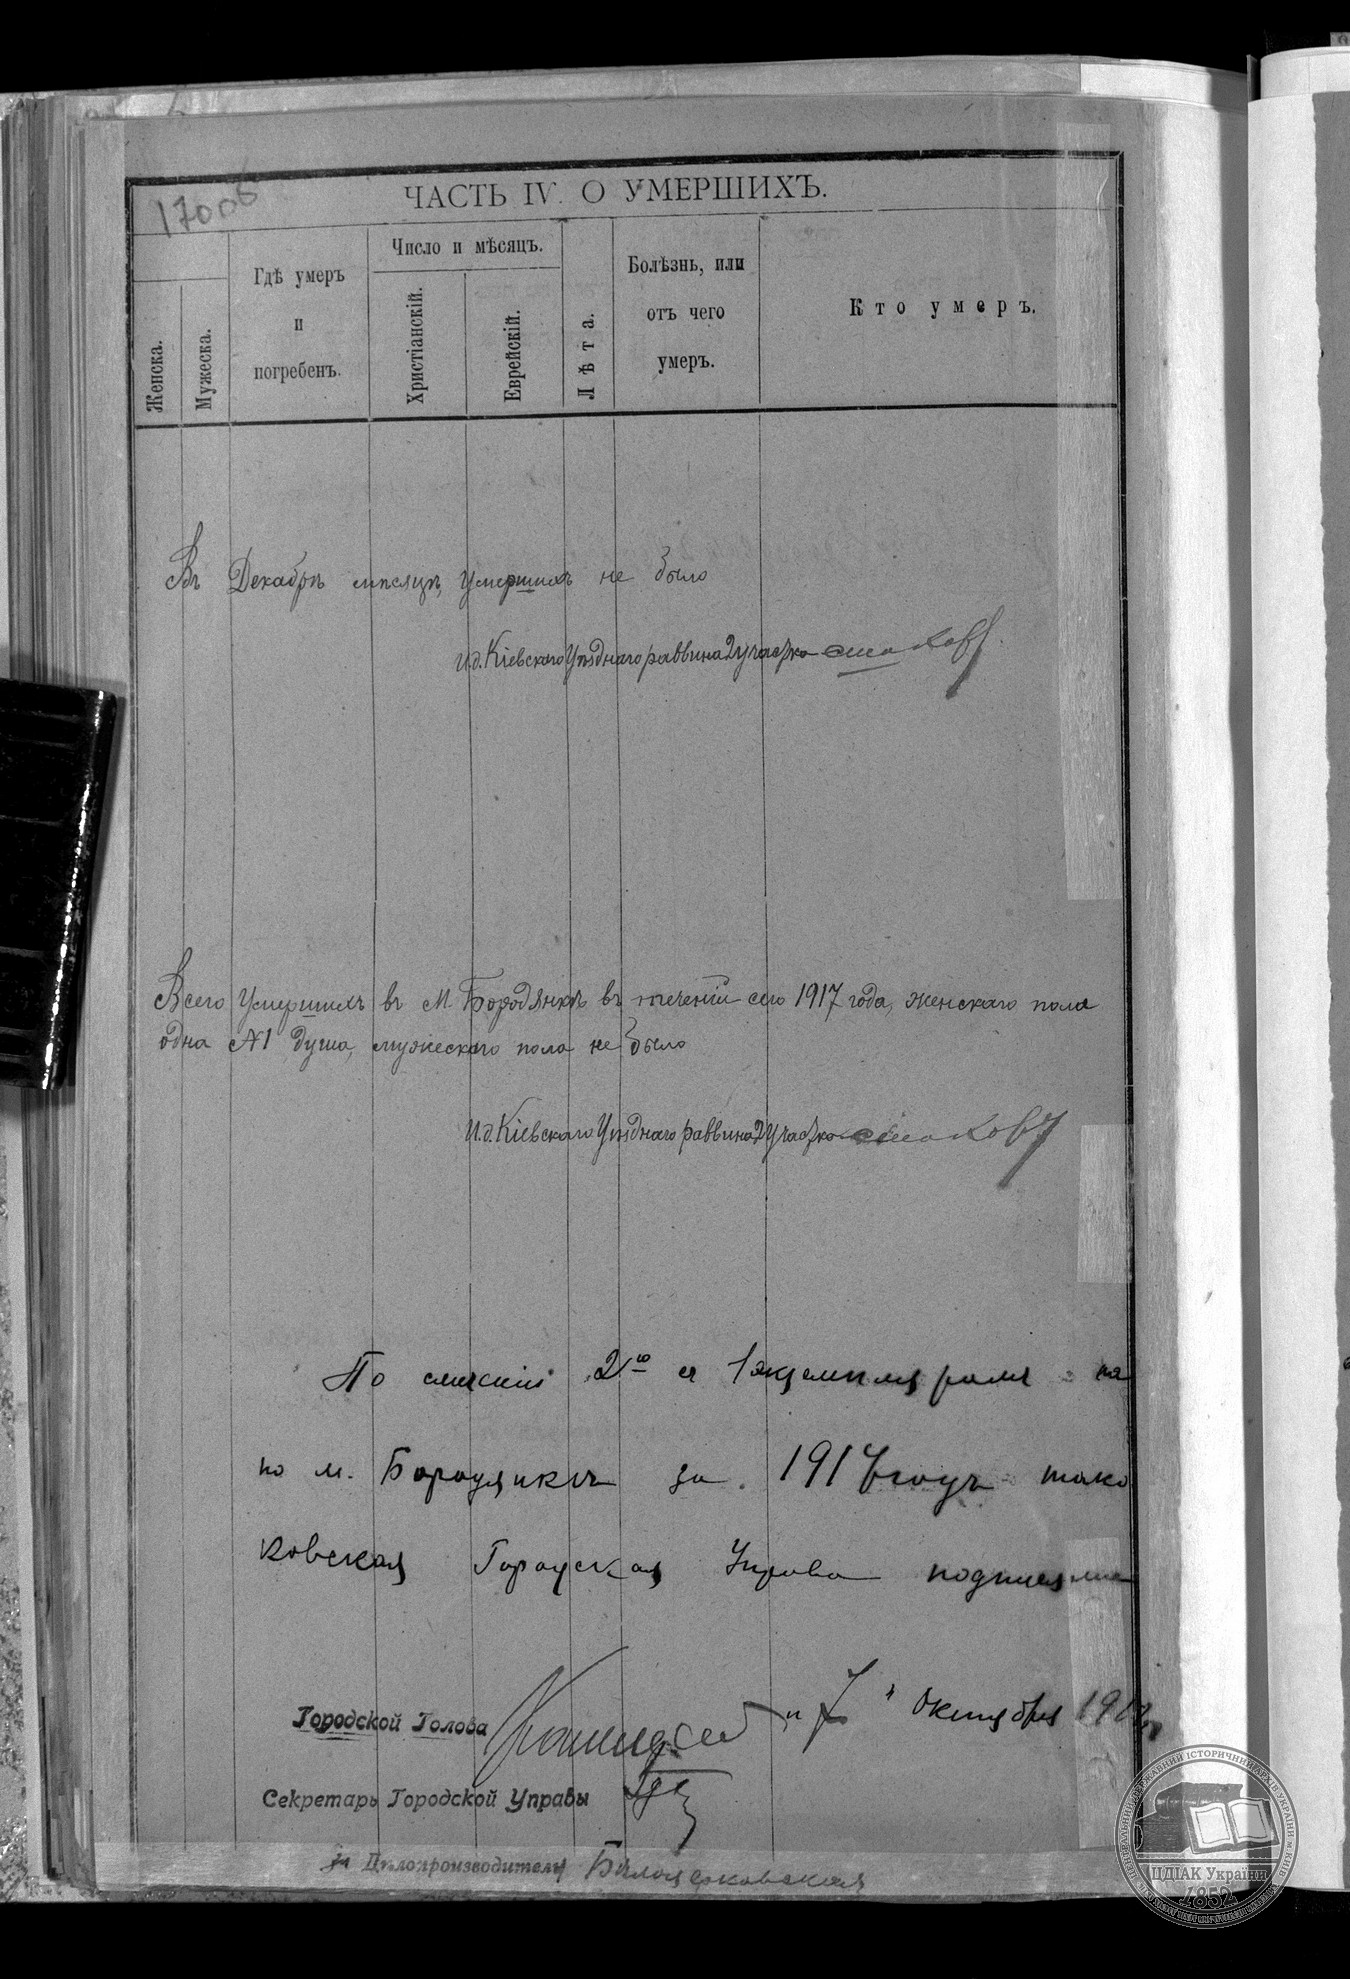 170об
ЧАСТЬ IV. О УМЕРШИХЪ.
Женска.
Мужеска.
Гдѣ умеръ
и
погребенъ.
Число и мѣсяцъ.
Христіанскій.
Еврейскій.
Лѣта.
Болѣзнь, или
отъ чего
умеръ.
Кто умеръ.
Въ Декабрѣ мѣсяцѣ, умершихъ не было
И.д. Кіевскаго Уѣзднаго раввина 2 участка
Всего Умершихъ въ М. Бородянкѣ въ теченіи сего 1917 года, женскаго пола
одна №1 душа, мужескаго пола не было
И.д. Кіевскаго Уѣзднаго раввина 2 Участка
По сличеніи 2го съ 1 экземпляромъ
по м. Бородянкѣ за 1917 годъ
ковская Городская Управа
Городской Голова
„7" Октября
Секретарь Городской Управы
За Дѣлопроизводителя Бѣлоцерковская
ЦЕНТРАЛЬНИЙ ДЕРЖАВНИЙ ІСТОРИЧНИЙ АРХІВ УКРАЇНИ М.КИЇВ
ЦДІАК України
1852